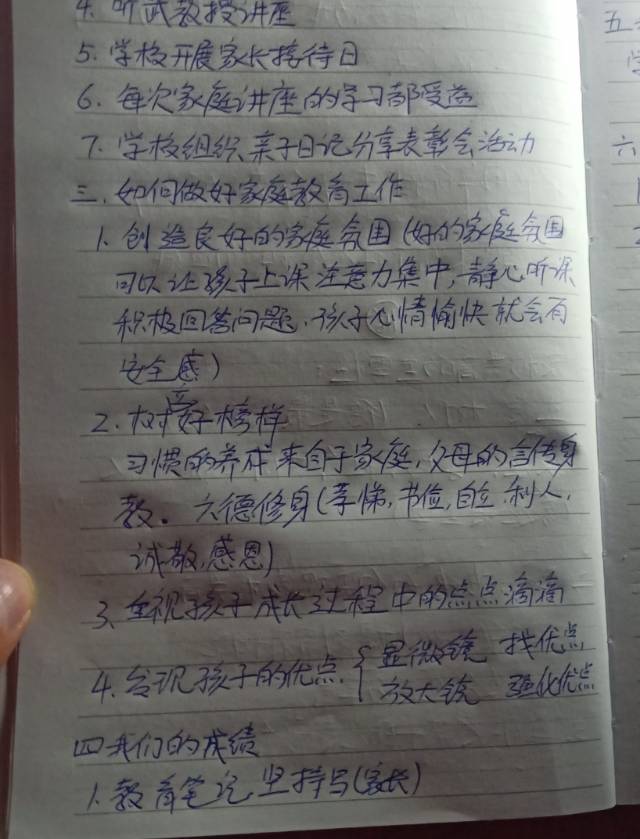 4. 听武教授讲座
5. 学校开展家长接待日
6. 每次家庭讲座的学习都受益
7. 学校组织亲子日记分享表彰会活动
三、如何做好家庭教育工作
1. 创造良好的家庭氛围(好的家庭氛围
可以让孩子上课注意力集中,静心听课
积极回答问题、孩子心情愉快就会有
安全感)
2. 树好榜样
习惯的养成来自于家庭,父母的言传身
教。六德修身(孝悌,书位,自立,利人,
诚敬,感恩)
3、重视孩子成长过程中的点点滴滴
4. 发现孩子的优点 { 显微镜 找优点
放大镜 强化优点
四我们的成绩
1. 教育笔记坚持写(家长)
五
学
六